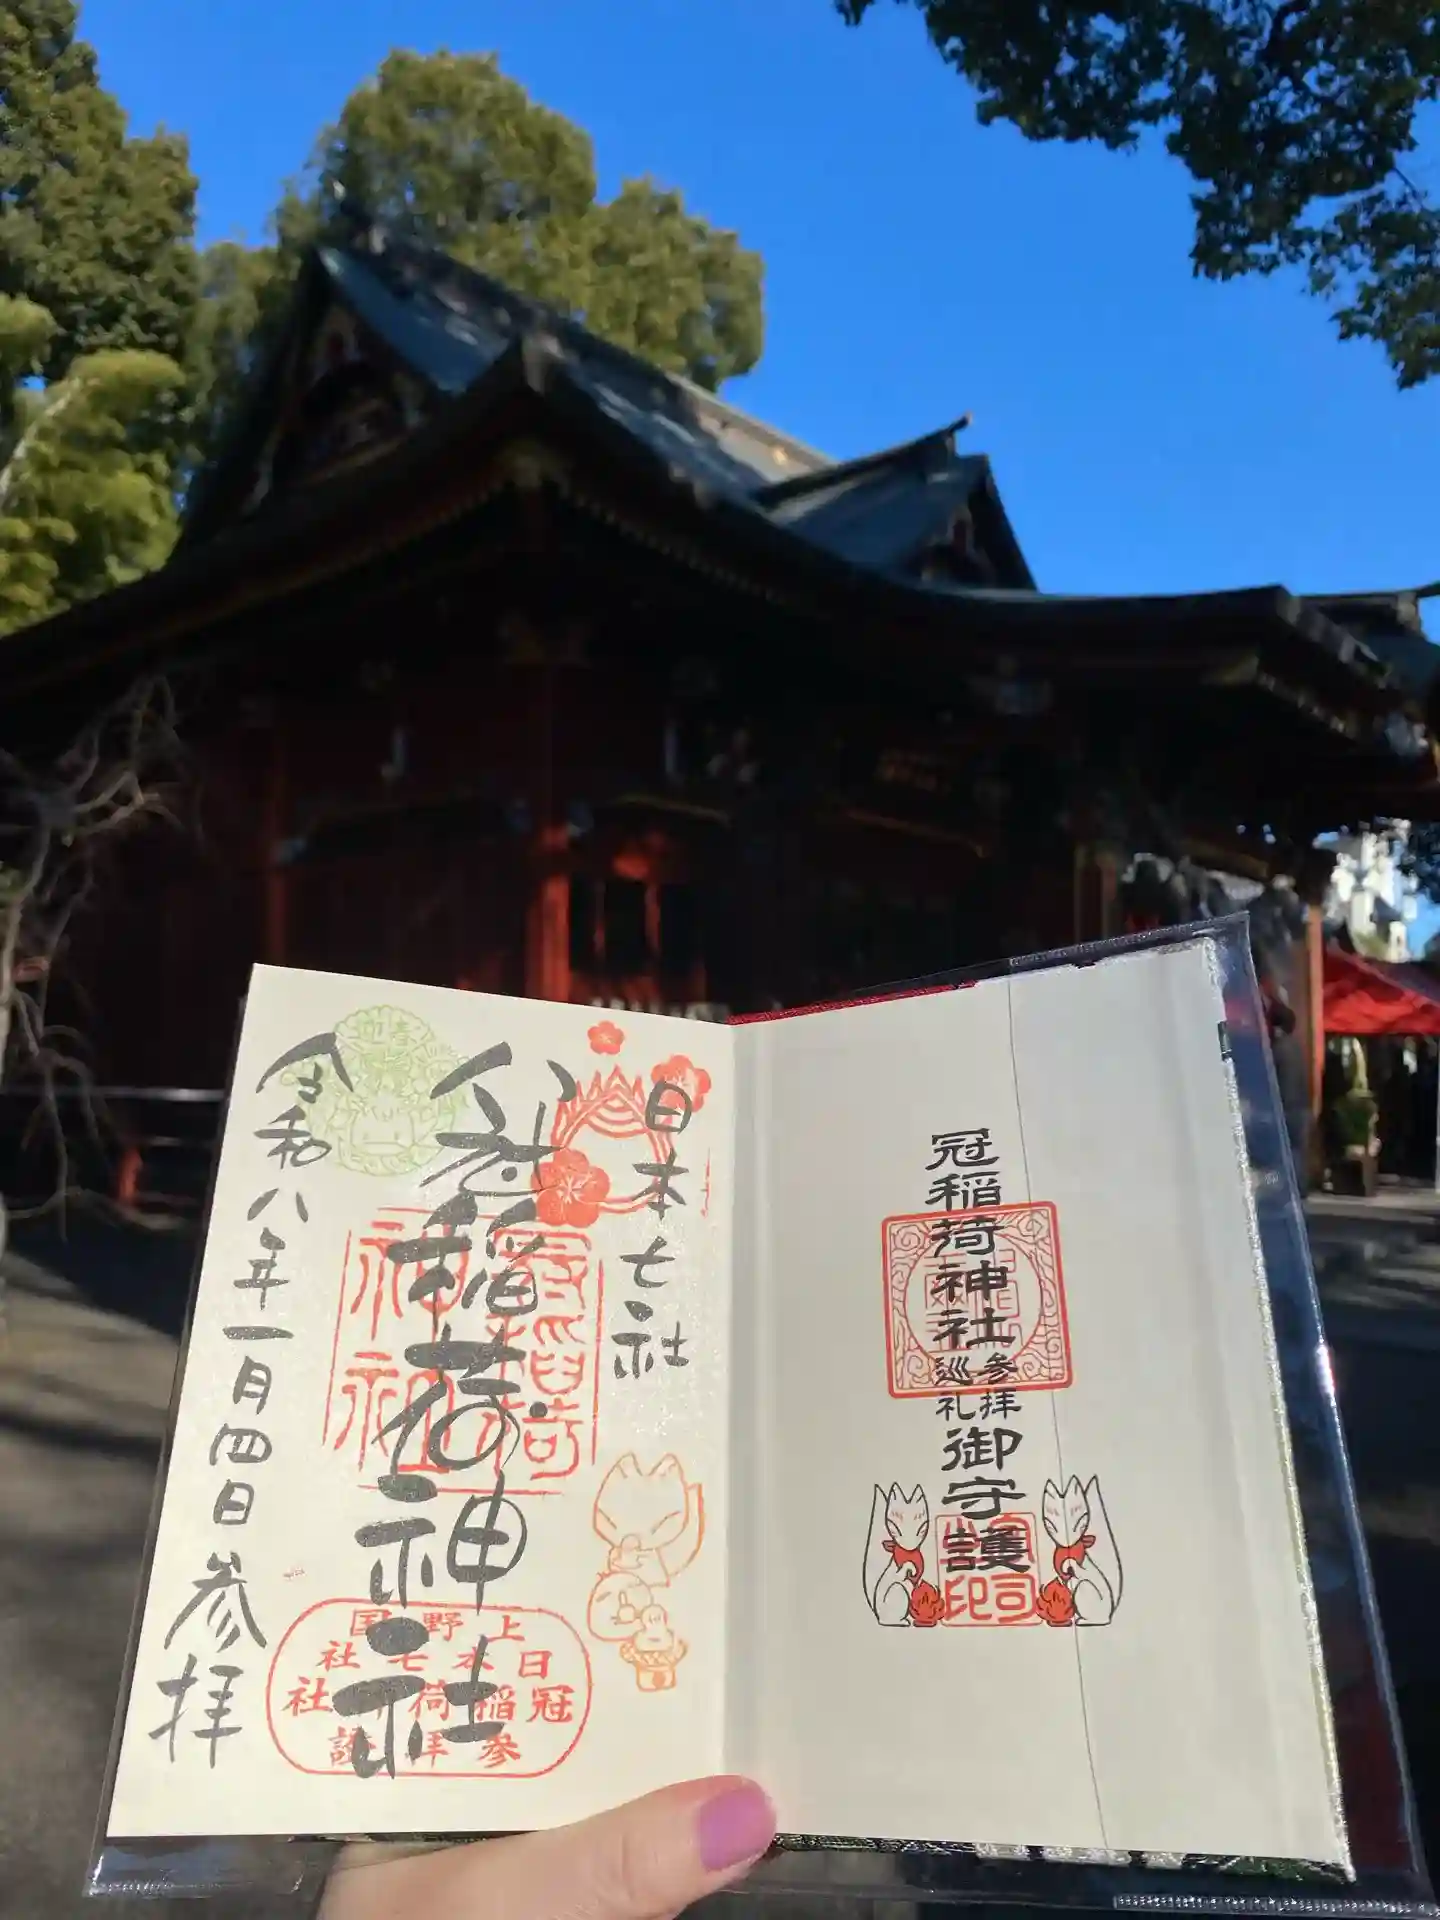 日本七社
冠稲荷神社
令和八年一月四日参拝
迎春
冠稲荷
神社
上野国
日本七社
冠稲荷
社
参拝證
冠稲荷神社
参拝
巡礼
御守護
宮司
之印